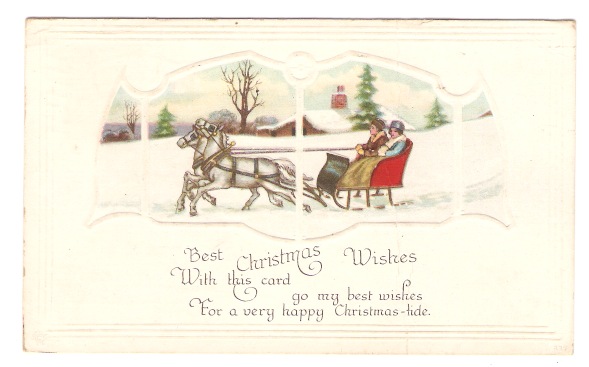 Best Christmas Wishes
With this card
go my best wishes
For a very happy Christmas-tide.